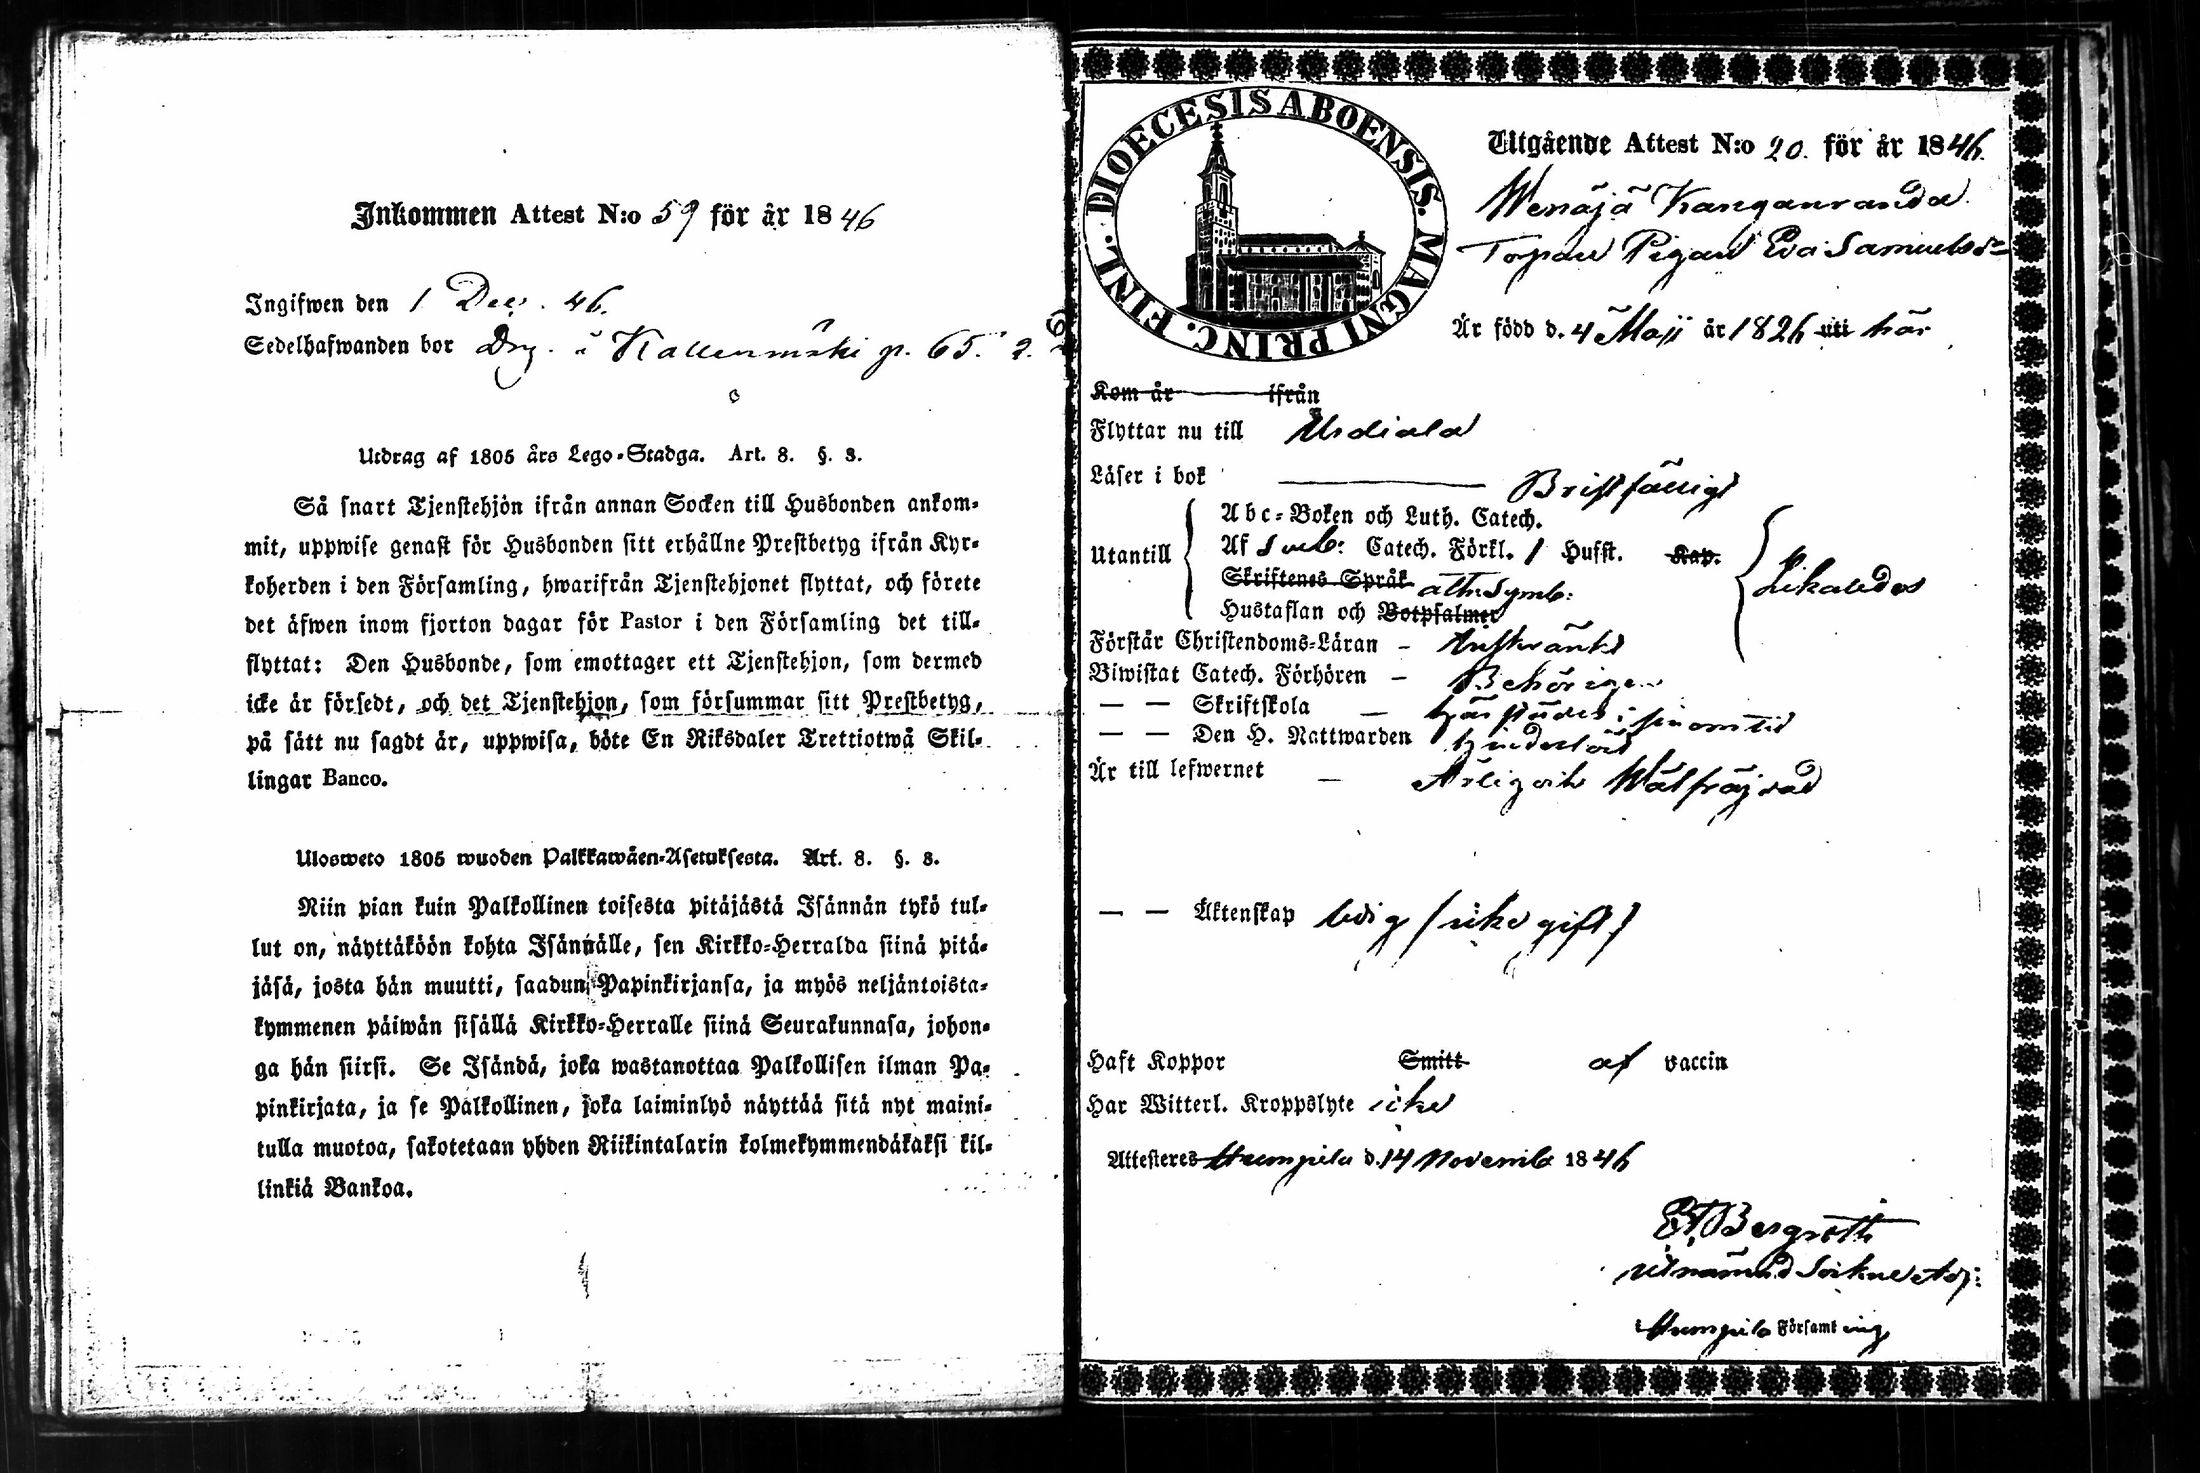 Inkommen Attest N:o 59 för år 1846
Ingifwen den 1 Dec. 46.
Sedelhafwanden bor Drg. i Kallenmäki p. 65.
Utdrag af 1805 års Lego-Stadga. Art. 8. §. 3.
Så snart Tjenstehjon ifrån annan Socken till Husbonden ankom-
mit, uppwise genast för Husbonden sitt erhållne Prestbetyg ifrån Kyr-
koherden i den Församling, hwarifrån Tjenstehjonet flyttat, och förete
det äfwen inom fjorton dagar för Pastor i den Församling det till-
flyttat: Den Husbonde, som emottager ett Tjenstehjon, som dermed
icke är försedt, och det Tjenstehjon, som försummar sitt Prestbetyg,
på sätt nu sagdt är, uppwisa, böte En Riksdaler Trettiotwå Skil-
lingar Banco.
Ulosweto 1805 wuoden Palkkawäen-Asetuksesta. Art. 8. §. 3.
Niin pian kuin Palkollinen toisesta pitäjästä Isännän tykö tul-
lut on, näyttäköön kohta Isännälle, sen Kirkko-Herralda siinä pitä-
jäsä, josta hän muutti, saadun Papinkirjansa, ja myös neljäntoista-
kymmenen päiwän sisällä Kirkko-Herralle siinä Seurakunnasa, johon-
ga hän siirsi. Se Isändä, joka wastanottaa Palkollisen ilman Pa-
pinkirjata, ja se Palkollinen, joka laiminlyö näyttää sitä nyt maini-
tulla muotoa, sakotetaan yhden Riikintalarin kolmekymmendäkaksi kil-
linkiä Bankoa.
DIOECESIS ABOENSIS. MAGNI PRINC. FINL.
Utgående Attest N:o 20. för år 1846.
Wenäjä Kanganranda
Torpare Pigan Eva Samuelsdr
Är född d. 4 Maji år 1826 uti här
Kom år ifrån
Flyttar nu till Urdiala
Läser i bok Bristfälligt
Utantill
Abc-Boken och Luth. Catech.
Af Sveb: Catech. Förkl. 1 Hufst. Kap.
Skriftenes Språk ath: Symb:
Hustaflan och Botpsalmer
Likaledes
Förstår Christendoms-Läran - Inskränkt
Biwistat Catech. Förhören - Behörigen
— — Skriftskola — härstädes i sinom tid
— — Den H. Nattwarden hinderlöst
Är till lefwernet — Ärlig och Wälfräjdad
— — Äktenskap ledig (icke gift)
Haft Koppor Smitt af vaccin
Har Witterl. Kroppslyte icke
Attesteres Humpila d. 14 Novemb 1846
Bergroth
i Humpila Församling